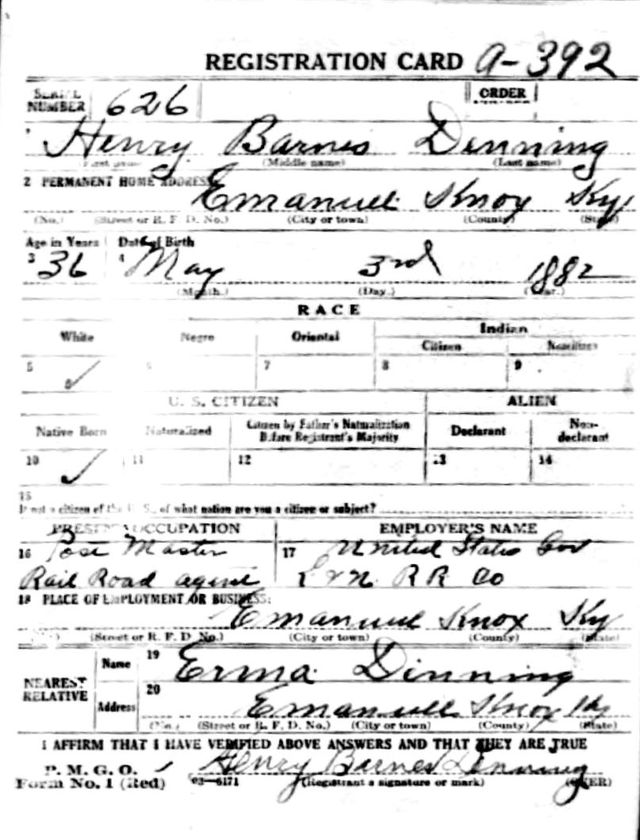 REGISTRATION CARD A-392
SERIAL NUMBER 626 ORDER
1 Henry Barnes Dinning
(First name) (Middle name) (Last name)
2 PERMANENT HOME ADDRESS: Emanuel Knox Ky
(No.) (Street or R. F. D. No.) (City or town) (County) (State)
Age in Years Date of Birth
3 36 4 May 3rd 1882
(Month.) (Day.) (Year.)
RACE
White Negro Oriental Indian
Citizen Noncitizen
5 ✓ 6 7 8 9
U. S. CITIZEN ALIEN
Native Born Naturalized Citizen by Father's Naturalization Before Registrant's Majority Declarant Non-declarant
10 ✓ 11 12 13 14
15
If not a citizen of the U. S., of what nation are you a citizen or subject?
PRESENT OCCUPATION EMPLOYER'S NAME
16 Post Master 17 United States Gov
Rail Road agent L & N. R R Co
18 PLACE OF EMPLOYMENT OR BUSINESS:
Emanuel Knox Ky
(Street or R. F. D No.) (City or town) (County) (State)
NEAREST RELATIVE Name 19 Erma Dinning
Address 20 Emanuel Knox Ky
(No.) (Street or R. F. D. No.) (City or town) (County) (State)
I AFFIRM THAT I HAVE VERIFIED ABOVE ANSWERS AND THAT THEY ARE TRUE
P. M. G. O. Henry Barnes Dinning
Form No. 1 (Red) 03—6171 (Registrant's signature or mark) (OVER)